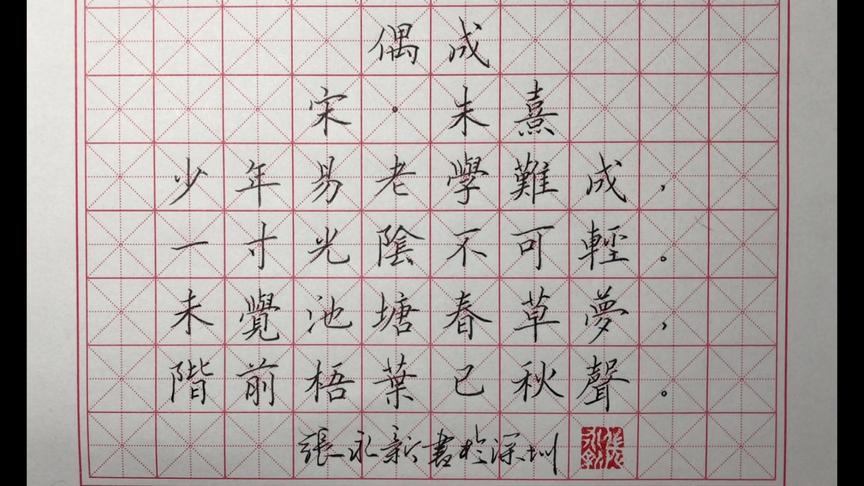 偶成
宋·朱熹
少年易老學難成，
一寸光陰不可輕。
未覺池塘春草夢，
階前梧葉已秋聲。
張永新書於深圳